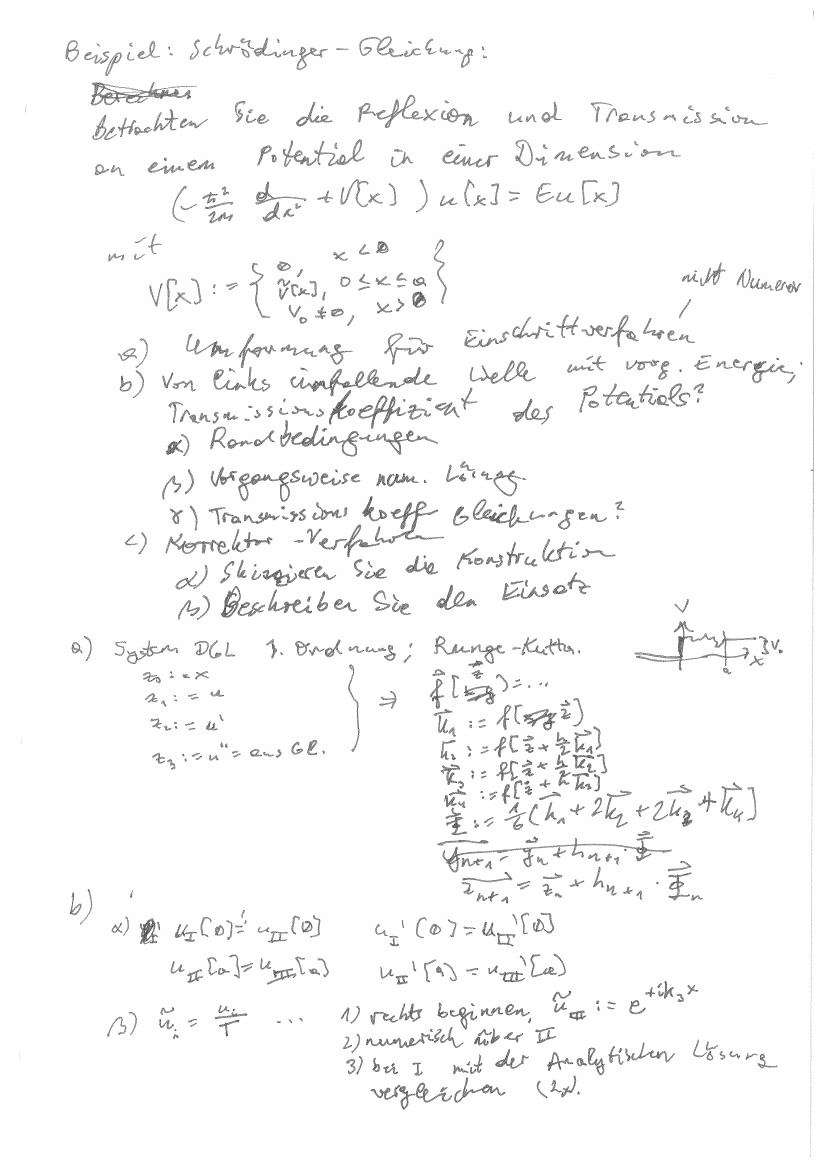 Beispiel: Schrödinger-Gleichung:
Berechnen
Betrachten Sie die Reflexion und Transmission
an einem Potential in einer Dimension
(-ħ²/2m d/dx² + V[x]) u[x] = Eu[x]
mit
V[x] := { 0, x < 0
Ṽ[x], 0 ≤ x ≤ a
V₀ ≠ 0, x > 0 }
nicht Numerov
a) Umformung für Einschrittverfahren
b) Von links einfallende Welle mit vorg. Energie;
Transmissionskoeffizient des Potentials?
α) Randbedingungen
β) Vorgangsweise num. Lösung.
γ) Transmissionskoeff Gleichungen?
c) Korrektor-Verfahren
α) Skizzieren Sie die Konstruktion
β) Beschreiben Sie den Einsatz
a) System DGL 1. Ordnung; Runge-Kutta.
V
V₀
a
x
z₀ := x
z₁ := u
z₂ := u'
z₃ := u'' = aus Gl.
⇒
f⃗[z⃗] = ...
k⃗₁ := f[z⃗]
k⃗₂ := f[z⃗ + h/2 k⃗₁]
k⃗₃ := f[z⃗ + h/2 k⃗₂]
k⃗₄ := f[z⃗ + h k⃗₃]
Φ⃗ := 1/6 (k⃗₁ + 2k⃗₂ + 2k⃗₃ + k⃗₄]
y⃗ₙ₊₁ = y⃗ₙ + hₙ₊₁ · Φ⃗
z⃗ₙ₊₁ = z⃗ₙ + hₙ₊₁ · Φ⃗ₙ
b)
α) u_I[0] = u_II[0] u_I'[0] = u_II'[0]
u_II[a] = u_III[a] u_II'[a] = u_III'[a]
β) ũᵢ = uᵢ/T ... 1) rechts beginnen, ũ_III := e^{+ik₃x}
2) numerisch über II
3) bei I mit der Analytischen Lösung
vergleichen (2x).